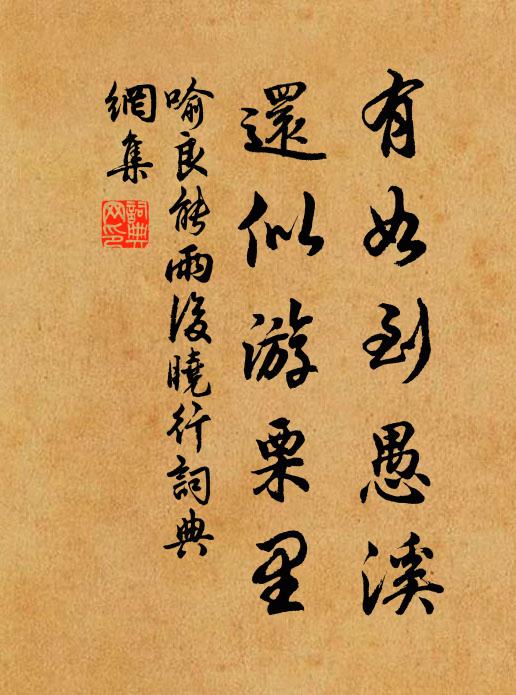 有如到愚溪
還似游栗里
喻良能雨後曉行詞典
網集
詞典
网印